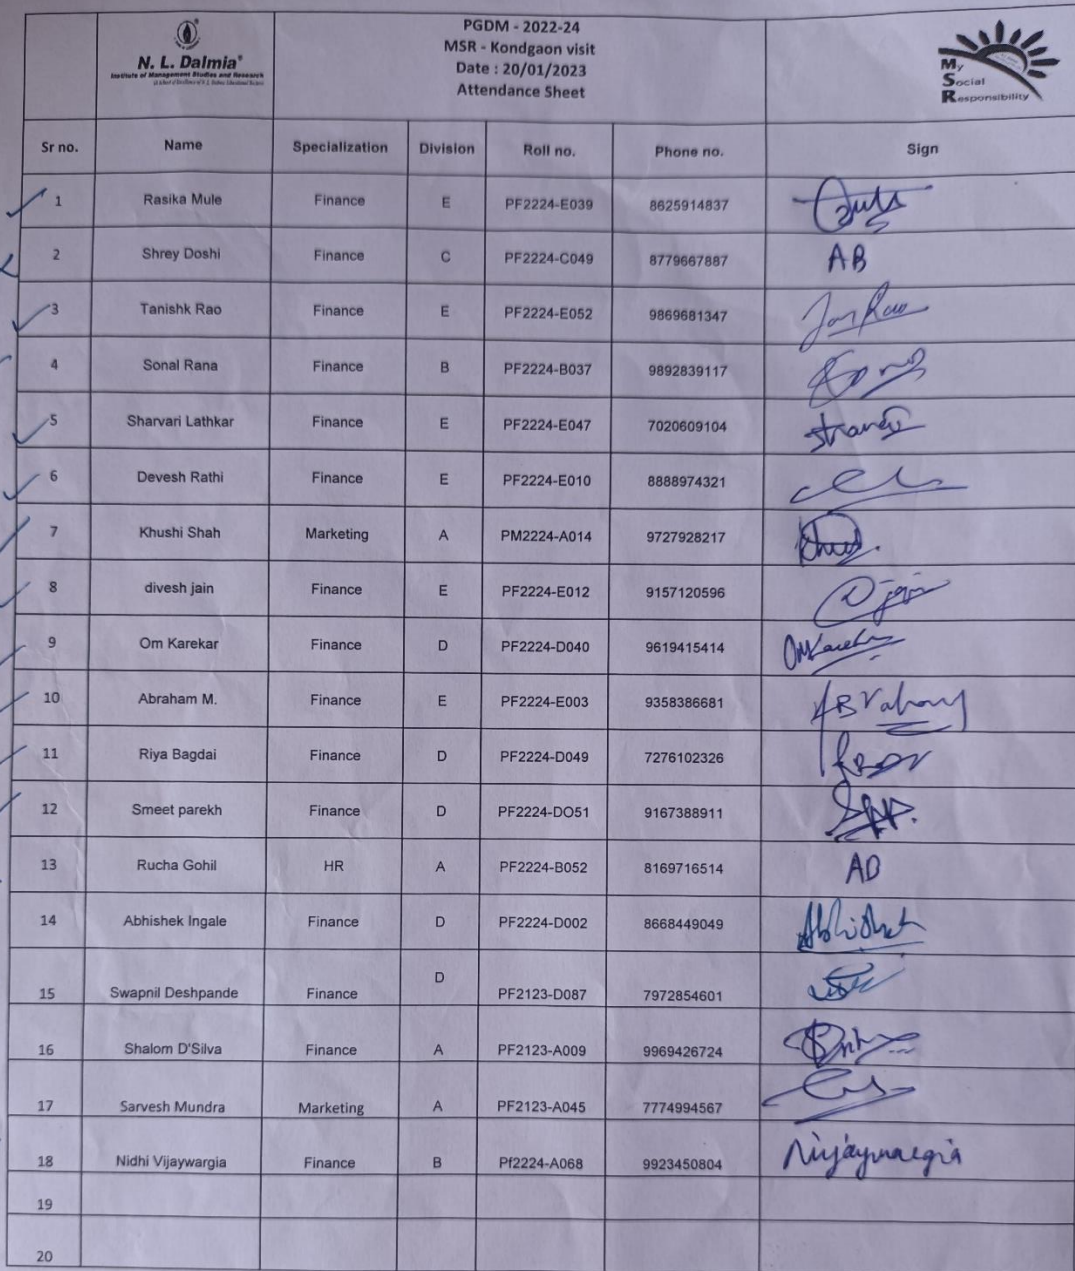 N. L. Dalmia®
Institute of Management Studies and Research
PGDM - 2022-24
MSR - Kondgaon visit
Date : 20/01/2023
Attendance Sheet
My
Social
Responsibility
Sr no. Name Specialization Division Roll no. Phone no. Sign
1 Rasika Mule Finance E PF2224-E039 8625914837
2 Shrey Doshi Finance C PF2224-C049 8779667887 AB
3 Tanishk Rao Finance E PF2224-E052 9869681347
4 Sonal Rana Finance B PF2224-B037 9892839117
5 Sharvari Lathkar Finance E PF2224-E047 7020609104
6 Devesh Rathi Finance E PF2224-E010 8888974321
7 Khushi Shah Marketing A PM2224-A014 9727928217
8 divesh jain Finance E PF2224-E012 9157120596
9 Om Karekar Finance D PF2224-D040 9619415414
10 Abraham M. Finance E PF2224-E003 9358386681
11 Riya Bagdai Finance D PF2224-D049 7276102326
12 Smeet parekh Finance D PF2224-DO51 9167388911
13 Rucha Gohil HR A PF2224-B052 8169716514 AB
14 Abhishek Ingale Finance D PF2224-D002 8668449049 Abhishek
15 Swapnil Deshpande Finance D PF2123-D087 7972854601
16 Shalom D'Silva Finance A PF2123-A009 9969426724
17 Sarvesh Mundra Marketing A PF2123-A045 7774994567
18 Nidhi Vijaywargia Finance B Pf2224-A068 9923450804
19
20